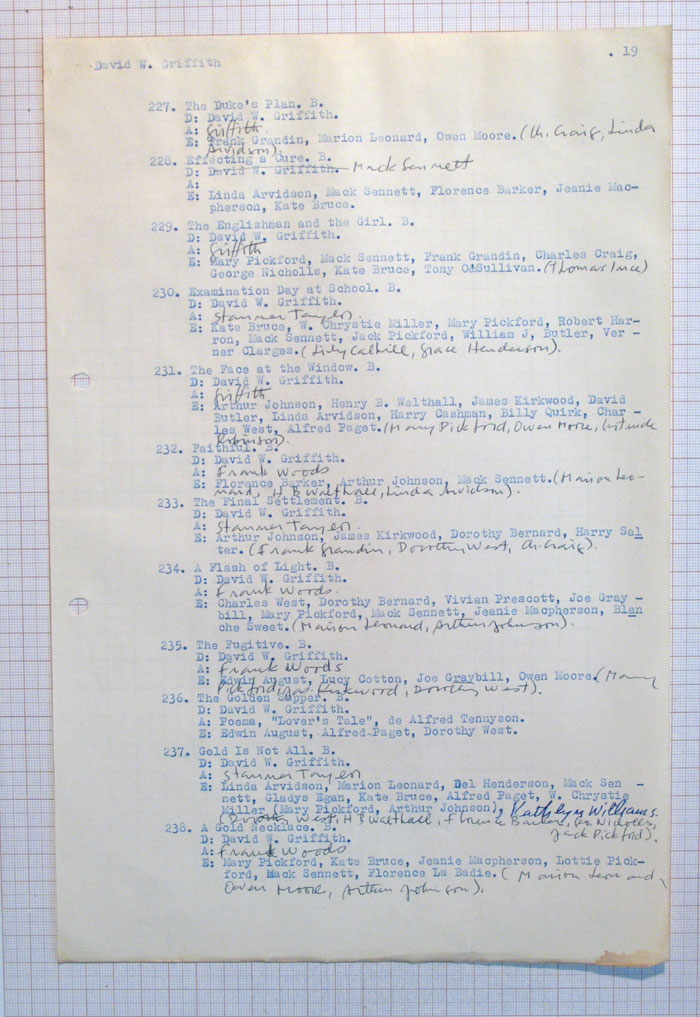 David W. Griffith
. 19
227. The Duke's Plan. B.
D: David W. Griffith.
A: Griffith.
E: Frank Grandin, Marion Leonard, Owen Moore. (Ch. Craig, Linda
Arvidson).
228. Effecting a Cure. B.
D: David W. Griffith. Mack Sennett
A:
E: Linda Arvidson, Mack Sennett, Florence Barker, Jeanie Mac-
pherson, Kate Bruce.
229. The Englishman and the Girl. B.
D: David W. Griffith.
A: Griffith
E: Mary Pickford, Mack Sennett, Frank Grandin, Charles Craig,
George Nicholls, Kate Bruce, Tony O'Sullivan. (Thomas Ince)
230. Examination Day at School. B.
D: David W. Griffith.
A: Stanner Taylor.
E: Kate Bruce, W. Chrystie Miller, Mary Pickford, Robert Har-
ron, Mack Sennett, Jack Pickford, William J, Butler, Ver -
ner Clarges. (Lily Cahill, Grace Henderson).
231. The Face at the Window. B.
D: David W. Griffith.
A: Griffith
E: Arthur Johnson, Henry B. Walthall, James Kirkwood, David
Butler, Linda Arvidson, Harry Cashman, Billy Quirk, Char -
les West, Alfred Paget. (Mary Pickford, Owen Moore, Gertrude
Robinson).
232. Faithful. B.
D: David W. Griffith.
A: Frank Woods
E: Florence Barker, Arthur Johnson, Mack Sennett. (Marion Leo-
nard, H B Walthall, Linda Arvidson).
233. The Final Settlement. B.
D: David W. Griffith.
A: Stanner Taylor.
E: Arthur Johnson, James Kirkwood, Dorothy Bernard, Harry Sal
ter. (Frank Grandin, Dorothy West, Ch. Craig).
234. A Flash of Light. B.
D: David W. Griffith.
A: Frank Woods.
E: Charles West, Dorothy Bernard, Vivian Prescott, Joe Gray -
bill, Mary Pickford, Mack Sennett, Jeanie Macpherson, Blan
che Sweet. (Marion Leonard, Arthur Johnson).
235. The Fugitive. B.
D: David W. Griffith.
A: Frank Woods
E: Edwin August, Lucy Cotton, Joe Graybill, Owen Moore. (Mary
Pickford, Jas. Kirkwood, Dorothy West).
236. The Golden Supper. B.
D: David W. Griffith.
A: Poema, "Lover's Tale", de Alfred Tennyson.
E: Edwin August, Alfred Paget, Dorothy West.
237. Gold Is Not All. B.
D: David W. Griffith.
A: Stanner Taylor
E: Linda Arvidson, Marion Leonard, Del Henderson, Mack Sen -
nett, Gladys Egan, Kate Bruce, Alfred Paget, W. Chrystie
Miller (Mary Pickford, Arthur Johnson), Kathlyn Williams.
(Dorothy West, H B Walthall, Florence Barker, Geo Nicholls,
Jack Pickford).
238. A Gold Necklace. B.
D: David W. Griffith.
A: Frank Woods
E: Mary Pickford, Kate Bruce, Jeanie Macpherson, Lottie Pick-
ford, Mack Sennett, Florence La Badie. (Marion Leonard,
Owen Moore, Arthur Johnson).